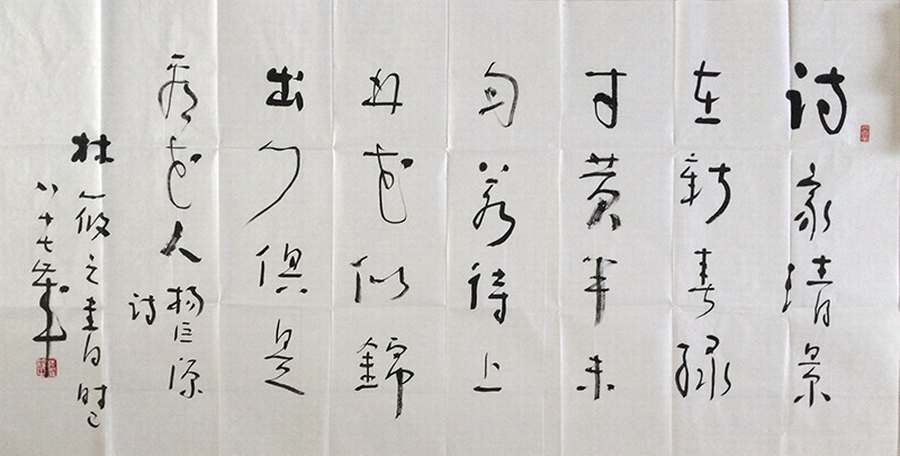 诗家清景
在新春绿
才黄半未
匀若待上
林花似錦
出门俱是
看花人 杨巨源
诗
林筱之書时已
八十七岁